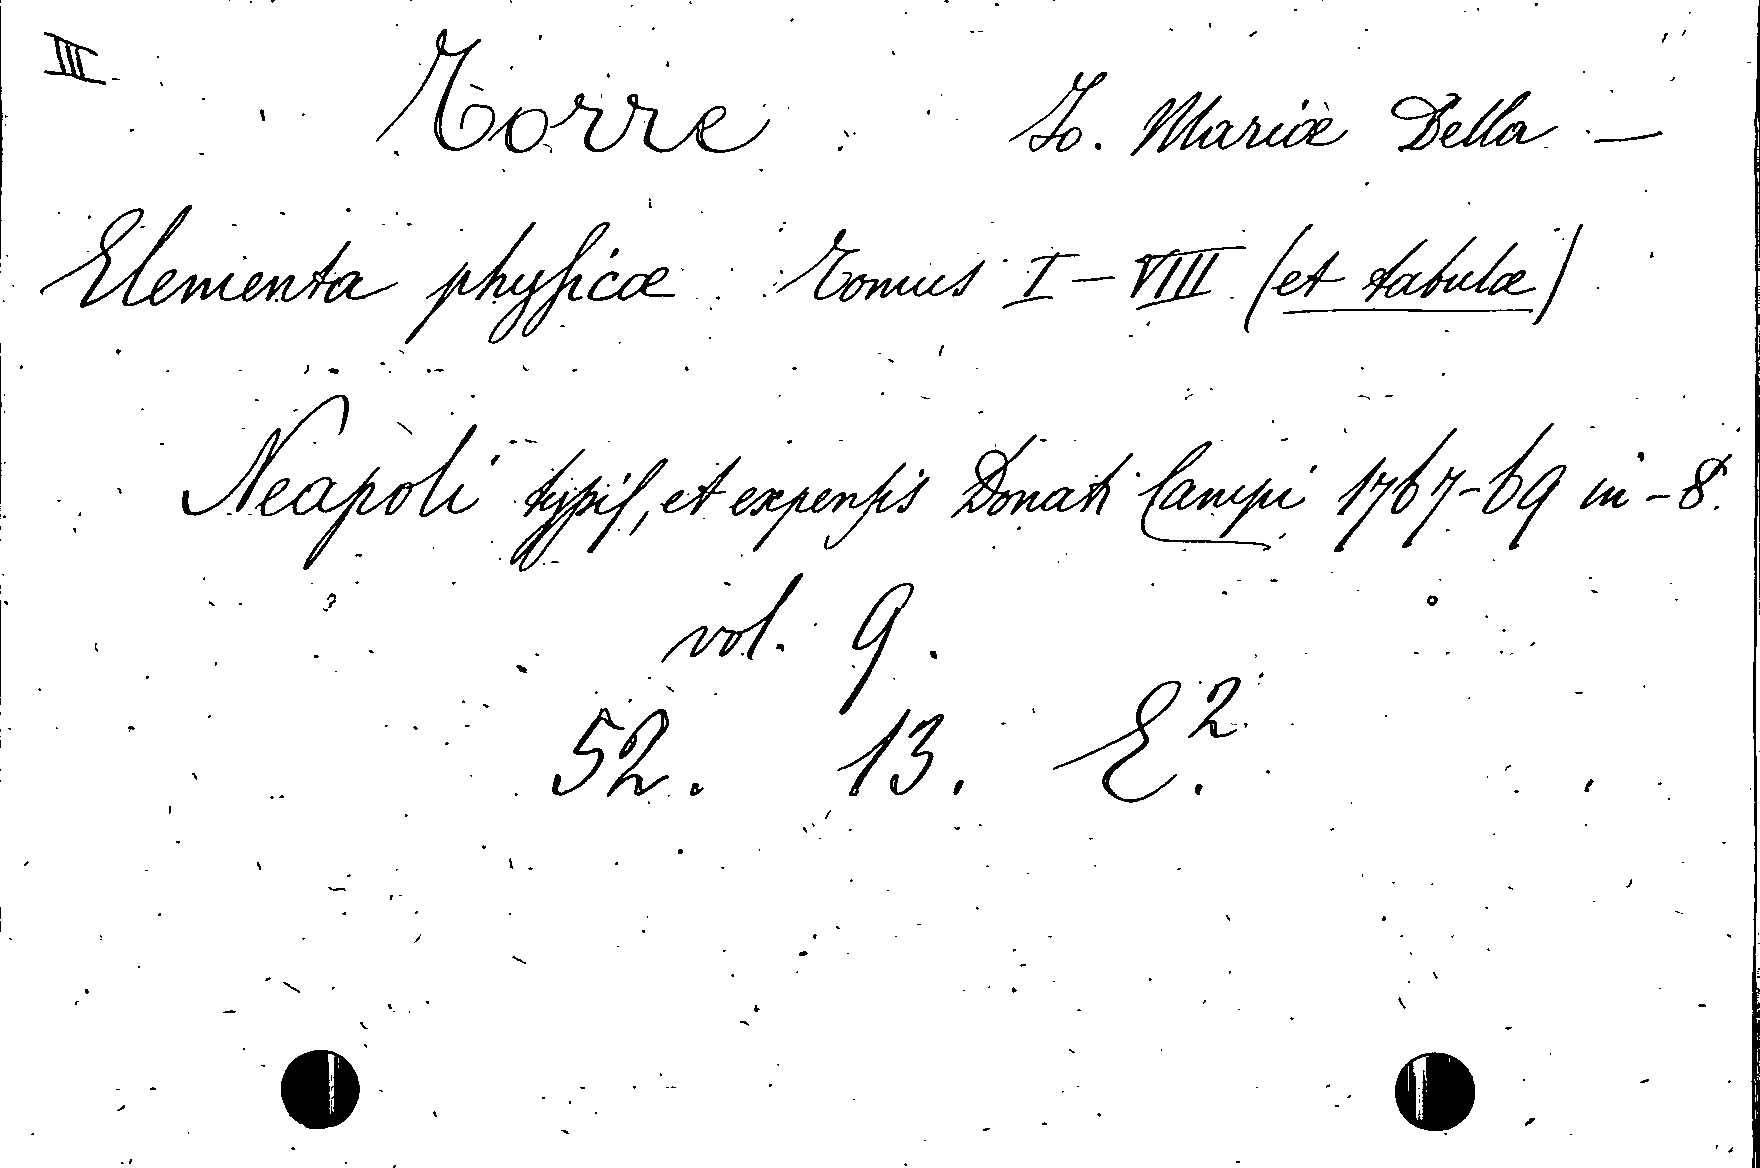 III Torre Jo. Mariæ Della —
Elementa phyſicæ Tomus I – VIII (et tabulæ)
Neapoli typiſ, et expenſis Donati Campi 1767-69 in-8.
vol. 9.
52. 13. E.²